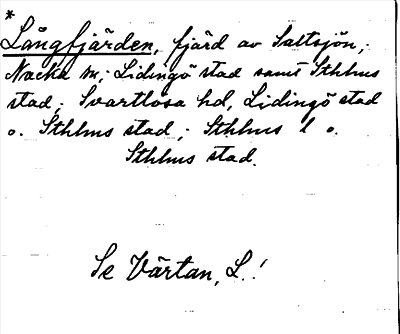 *
Långfjärden, fjärd av Saltsjön;
Nacka sn; Lidingö stad samt Sthlms
stad; Svartlösa hd, Lidingö stad
o. Sthlms stad; Sthlms l o.
Sthlms stad.
Se Värtan, L.!